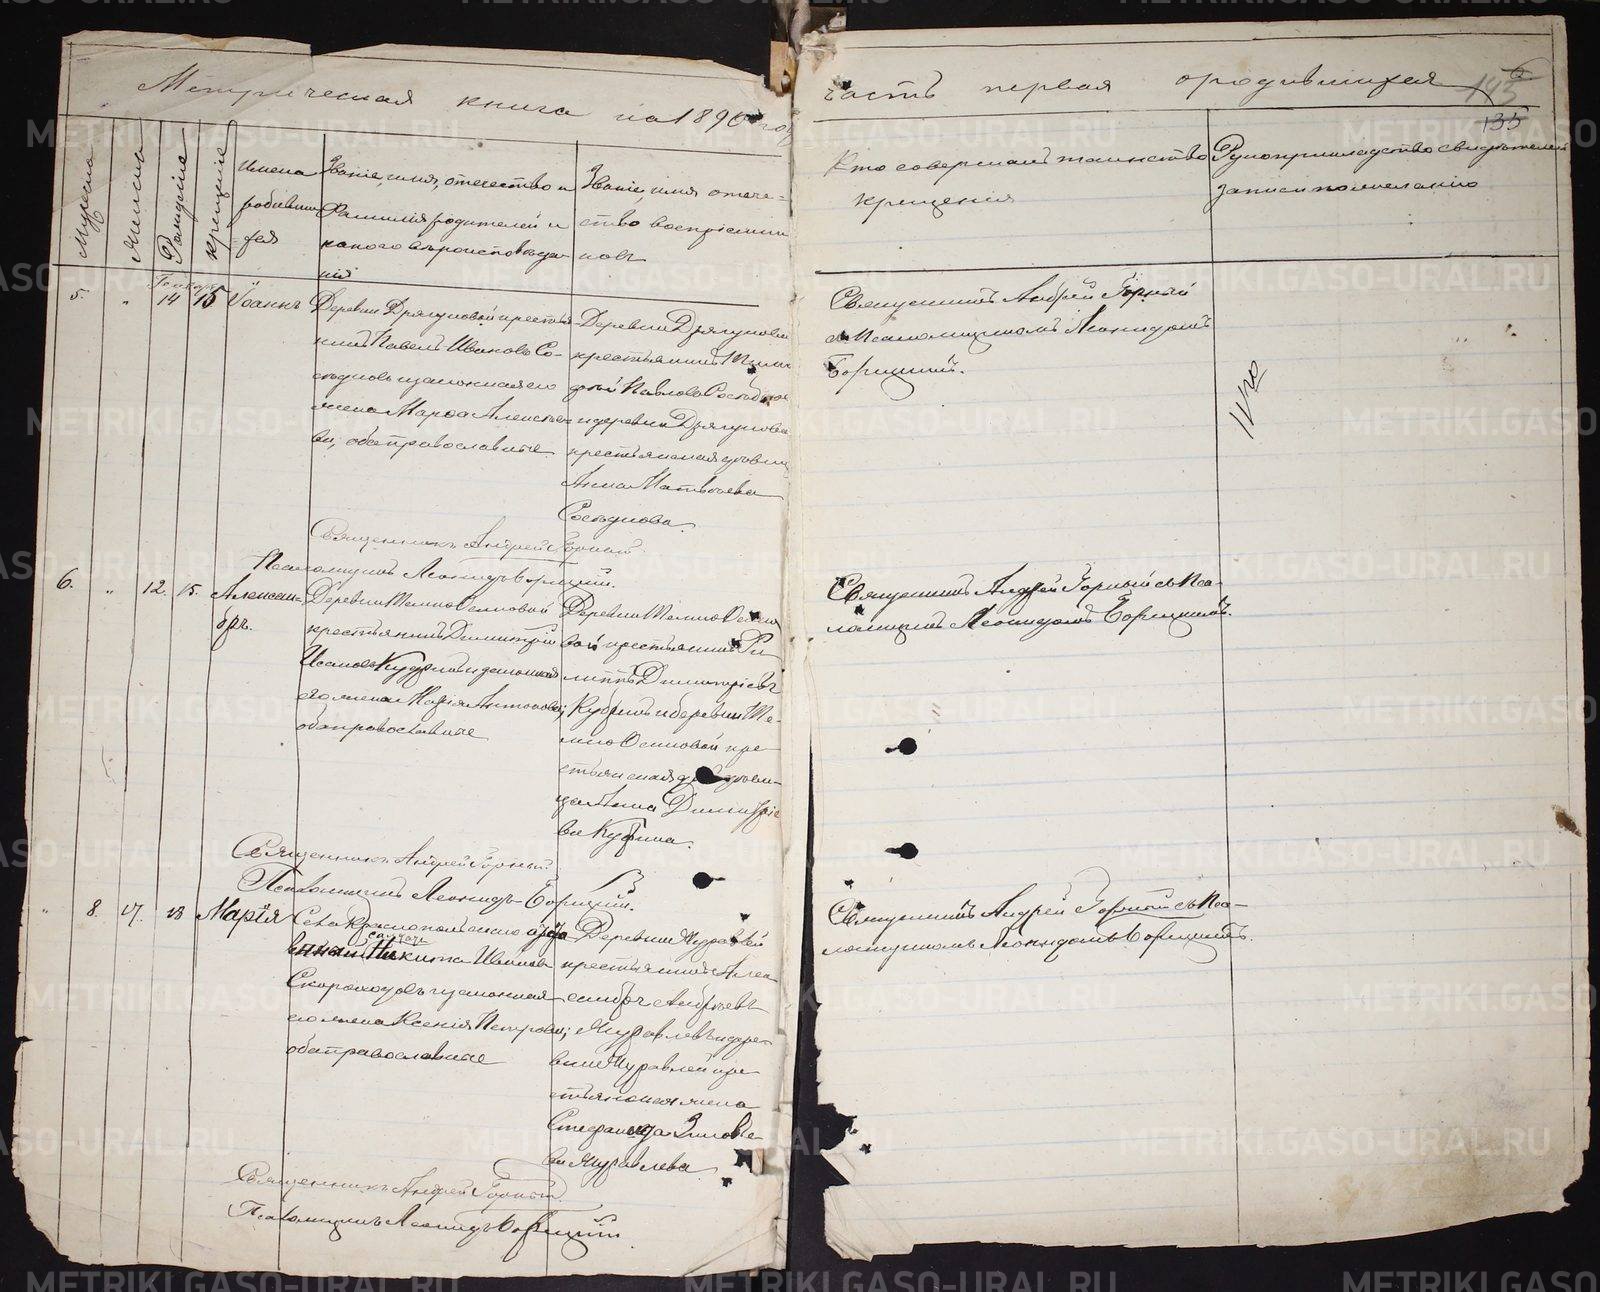 Метрическая книга на 1890 год
часть первая о родившихся
145
135
Мужеска
Женска
Рождение
Крещение
Имена
родивши
=хся
Званіе, имя, отечество и
Фамилія родителей и
какого вѣроисповѣда-
нія
Званіе, имя отече=
ство воспріемни
ковъ
Кто совершалъ таинство
крещенія
Рукоприкладство свидѣтелей
записи по желанію
5. " 14 15 Іоаннъ
Деревни Дрягуновой крестья-
нинъ Павелъ Ивановъ Со-
сѣдковъ и законная его
жена Марѳа Алексѣе-
ва; оба православные
Деревни Дрягуновой
крестьянинъ
Павловъ Сосѣдков
и деревни Дрягуновой
крестьянская
Анна Матвѣева
Сосѣдкова.
Священникъ Андрей Горный
съ Псаломщикомъ Леонидомъ
Борицкимъ.
Священникъ Андрей Горный
Псаломщикъ Леонидъ Борицкій.
6. " 12. 15. Алексан=
дръ.
Деревни Темно Осиновой
крестьянинъ Димитрій
Ивановъ Кудринъ и законная
его жена Марія Антонова;
оба православные
Деревни Темно Осино
вой крестьянинъ Фи
липпъ Димитріевъ
Кудринъ и деревни Те-
мно Осиновой кре-
стьянская
Анна Димитріе
ва Кудрина.
Священникъ Андрей Горный съ Пса-
ломщикомъ Леонидомъ Борицкимъ.
Священникъ Андрей Горный.
Псаломщикъ Леонидъ Борицкій.
" 8. 17. 18 Марія
Села Краснопольскаго
солдатъ
Никита Ивановъ
Скороходовъ и законная
его жена Ксенія Петрова;
оба православные
Деревни Журавлей
крестьянинъ Алек
сандръ Андреевъ
Журавлевъ и дере-
вни Журавлей кре-
стьянская жена
Стефанида Зиновье-
ва Журавлева.
Священникъ Андрей Горный съ Пса-
ломщикомъ Леонидомъ Борицкимъ.
Священникъ Андрей Горный.
Псаломщикъ Леонидъ Борицкій.
METRIKI.GASO-URAL.RU